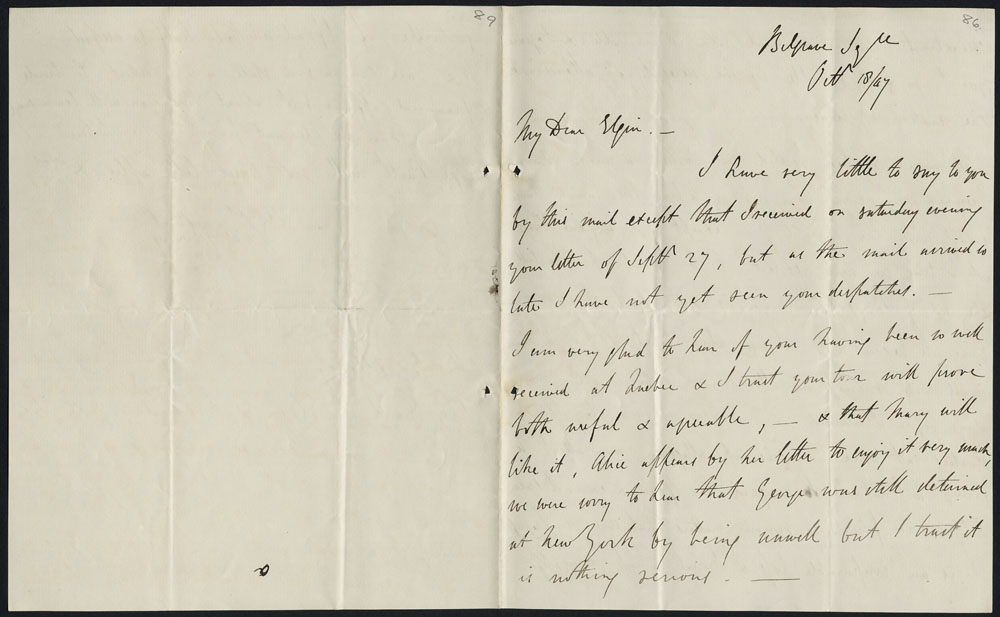 89
86
Belgrave Sqre
Octr 18/47
My Dear Elgin. —
I have very little to say to you
by this mail except that I received on saturday evening
your letter of Septr 27, but as the mail arrived so
late I have not yet seen your despatches. —
I am very glad to hear of your having been so well
received at Quebec & I trust your tour will prove
both useful & agreeable, — & that Mary will
like it, Alice appears by her letter to enjoy it very much,
we were sorry to hear that George was still detained
at New York by being unwell but I trust it
is nothing serious. —